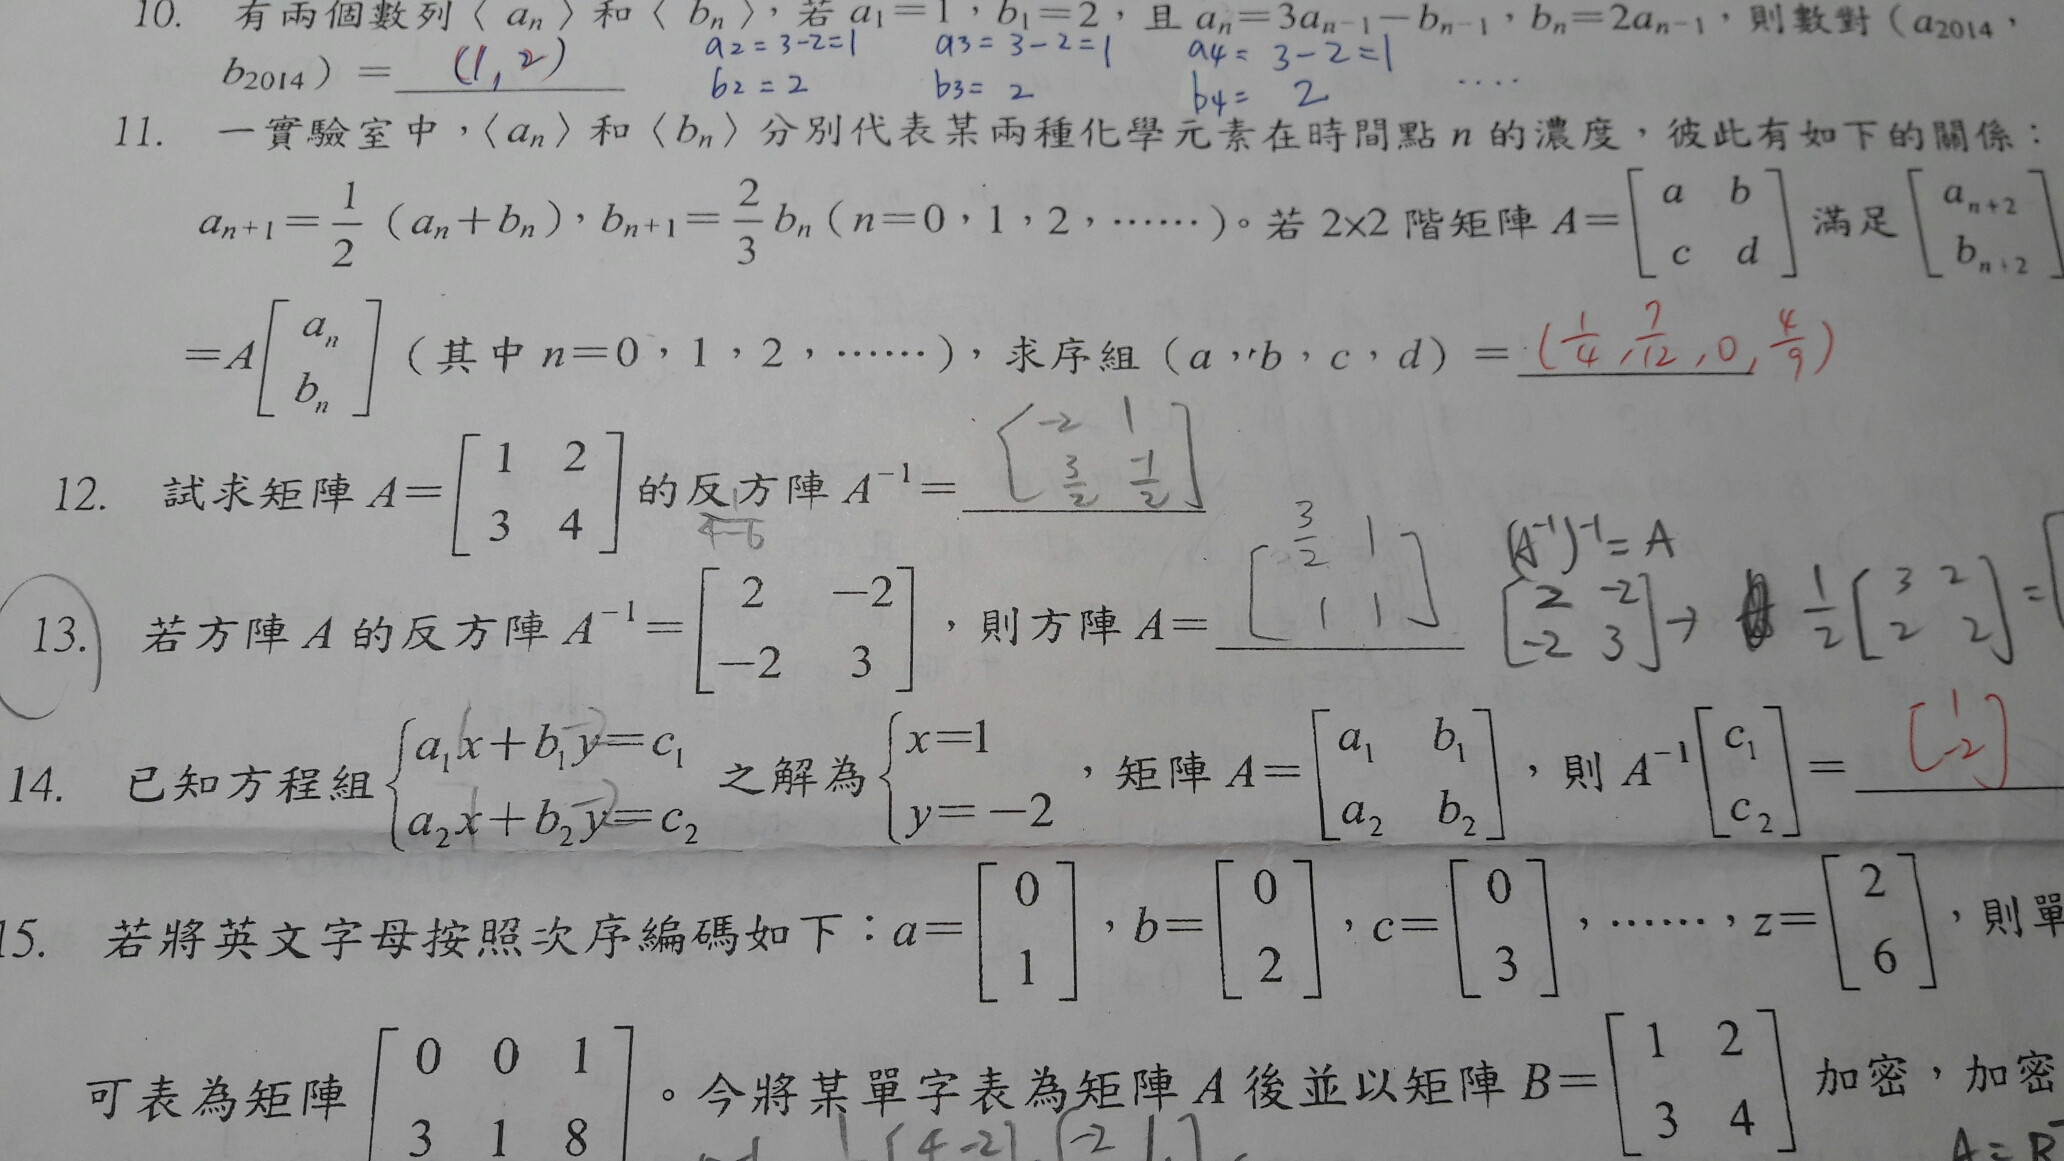 10. 有兩個數列〈 aₙ 〉和〈 bₙ 〉，若 a₁＝1，b₁＝2，且 aₙ＝3aₙ₋₁－bₙ₋₁，bₙ＝2aₙ₋₁，則數對（a₂₀₁₄，
a2=3-2=1 a3=3-2=1 a4=3-2=1
b₂₀₁₄）＝ (1,2)
b2=2 b3=2 b4=2 ....
11. 一實驗室中，〈aₙ〉和〈bₙ〉分別代表某兩種化學元素在時間點 n 的濃度，彼此有如下的關係：
aₙ₊₁＝1/2（aₙ＋bₙ），bₙ₊₁＝2/3 bₙ（n＝0，1，2，……）。若 2×2 階矩陣 A＝[a b; c d] 滿足 [aₙ₊₂; bₙ₊₂]
＝A[aₙ; bₙ]（其中 n＝0，1，2，……），求序組（a，b，c，d）＝ (1/4, 7/12, 0, 4/9)
12. 試求矩陣 A＝[1 2; 3 4] 的反方陣 A⁻¹＝ [-2 1; 3/2 -1/2]
1/4-6
(A⁻¹)⁻¹=A
13. 若方陣 A 的反方陣 A⁻¹＝[2 －2; －2 3]，則方陣 A＝ [3/2 1; 1 1] [2 -2; -2 3]→ 1/2 [3 2; 2 2] =
14. 已知方程組 {a₁x＋b₁y＝c₁; a₂x＋b₂y＝c₂ 之解為 {x＝1; y＝－2，矩陣 A＝[a₁ b₁; a₂ b₂]，則 A⁻¹[c₁; c₂]＝ [1; -2]
15. 若將英文字母按照次序編碼如下：a＝[0; 1]，b＝[0; 2]，c＝[0; 3]，……，z＝[2; 6]，則單
可表為矩陣 [0 0 1; 3 1 8]。今將某單字表為矩陣 A 後並以矩陣 B＝[1 2; 3 4] 加密，加密
[4 -2] [-2 1] A=B⁻